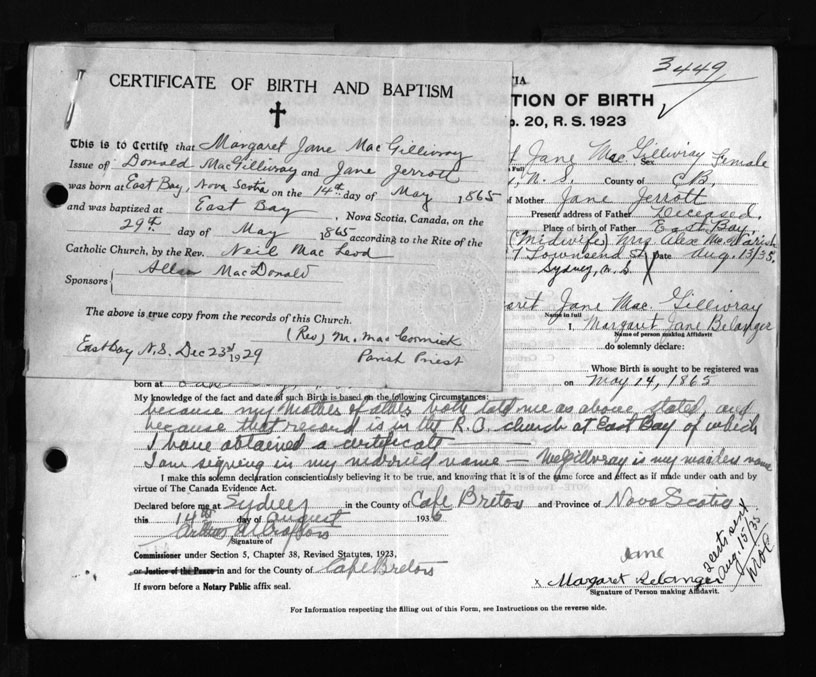 CERTIFICATE OF BIRTH AND BAPTISM
This is to Certify that Margaret Jane MacGillivray
Issue of Donald MacGillivray and Jane Jerrott
was born at East Bay, Nova Scotia on the 14th day of May 1865
and was baptized at East Bay, Nova Scotia, Canada, on the
29th day of May 1865 according to the Rite of the
Catholic Church, by the Rev. Neil MacLeod
Sponsors Allan MacDonald
The above is true copy from the records of this Church.
(Rev) M. MacCormick
East Bay N.S. Dec 23rd 1929 Parish Priest
3449
TION OF BIRTH
20, R. S. 1923
Jane MacGillivray Female
N.S. County of C.B.
of Mother Jane Jerrott
Present address of Father Deceased.
Place of birth of Father East Bay,
(Midwife) Mrs Alex
Townsend St Date Aug. 13/35.
Sydney, N.S.
aret Jane Mac. Gillivray
Name in full
I, Margaret Jane Belanger
Name of person making Affidavit
do solemnly declare:
Whose Birth is sought to be registered was
born at on May 14, 1865
My knowledge of the fact and date of such Birth is based on the following Circumstances:
because my Mother & both told me as above stated, and
because that record is in the R.C. church at East Bay of which
I have obtained a certificate
I am signing in my married name — McGillvray is my maiden name
I make this solemn declaration conscientiously believing it to be true, and knowing that it is of the same force and effect as if made under oath and by
virtue of The Canada Evidence Act.
Declared before me at Sydney in the County of Cape Breton and Province of Nova Scotia
this 14th day of August 193
Signature of
Commissioner under Section 5, Chapter 38, Revised Statutes, 1923,
or Justice of the Peace in and for the County of Cape Breton
If sworn before a Notary Public affix seal.
Jane
x Margaret Belanger
Signature of Person making Affidavit.
2 certs sent
Aug. 15/35
For Information respecting the filling out of this Form, see Instructions on the reverse side.